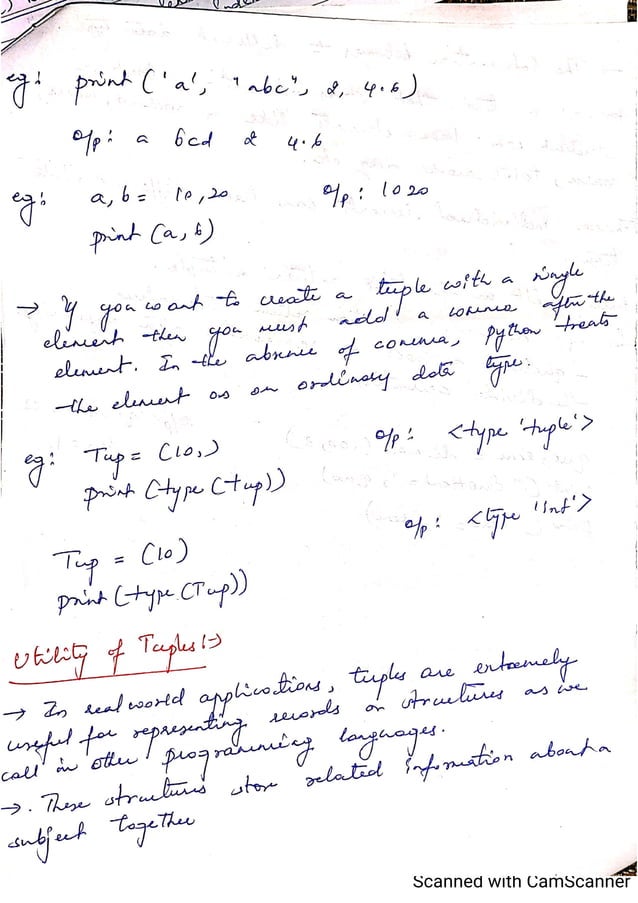 eg: print ('a', "abc", 2, 4.6)
o/p: a bcd 2 4.6
eg: a, b = 10,20 o/p: 10 20
print (a, b)
→ If you want to create a tuple with a single
element then you must add a comma after the
element. In the absence of comma, python treats
the element as an ordinary data type.
eg: Tup = (10,) o/p: <type 'tuple'>
print (type (tup))
o/p: <type 'int'>
Tup = (10)
print (type (Tup))
Utility of Tuples :→
→ In real world applications, tuples are extremely
useful for representing records or structures as we
call in other programming languages.
→. These structures store related information about a
subject together
Scanned with CamScanner